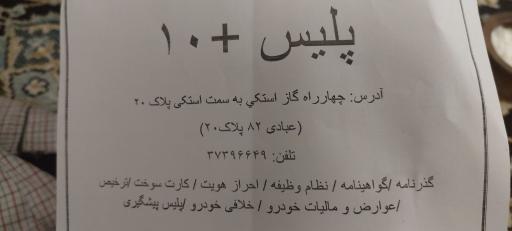 پلیس +۱۰
آدرس: چهارراه گاز استکي به سمت استکی پلاک ۲۰
(عبادی ۸۲ پلاک۲۰)
تلفن: ۳۷۳۹۶۶۴۹
گذرنامه /گواهینامه / نظام وظیفه / احراز هویت / کارت سوخت /ترخیص
/عوارض و مالیات خودرو / خلافی خودرو /پلیس پیشگیری